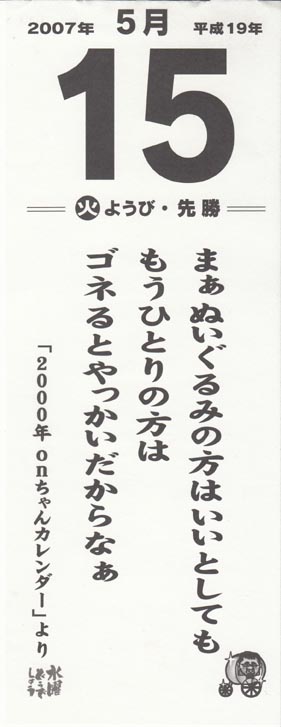 2007年 5月 平成19年
15
火ようび・先勝
まぁぬいぐるみの方はいいとしても
もうひとりの方は
ゴネるとやっかいだからなぁ
「2000年onちゃんカレンダー」より
水曜
どうでしょう